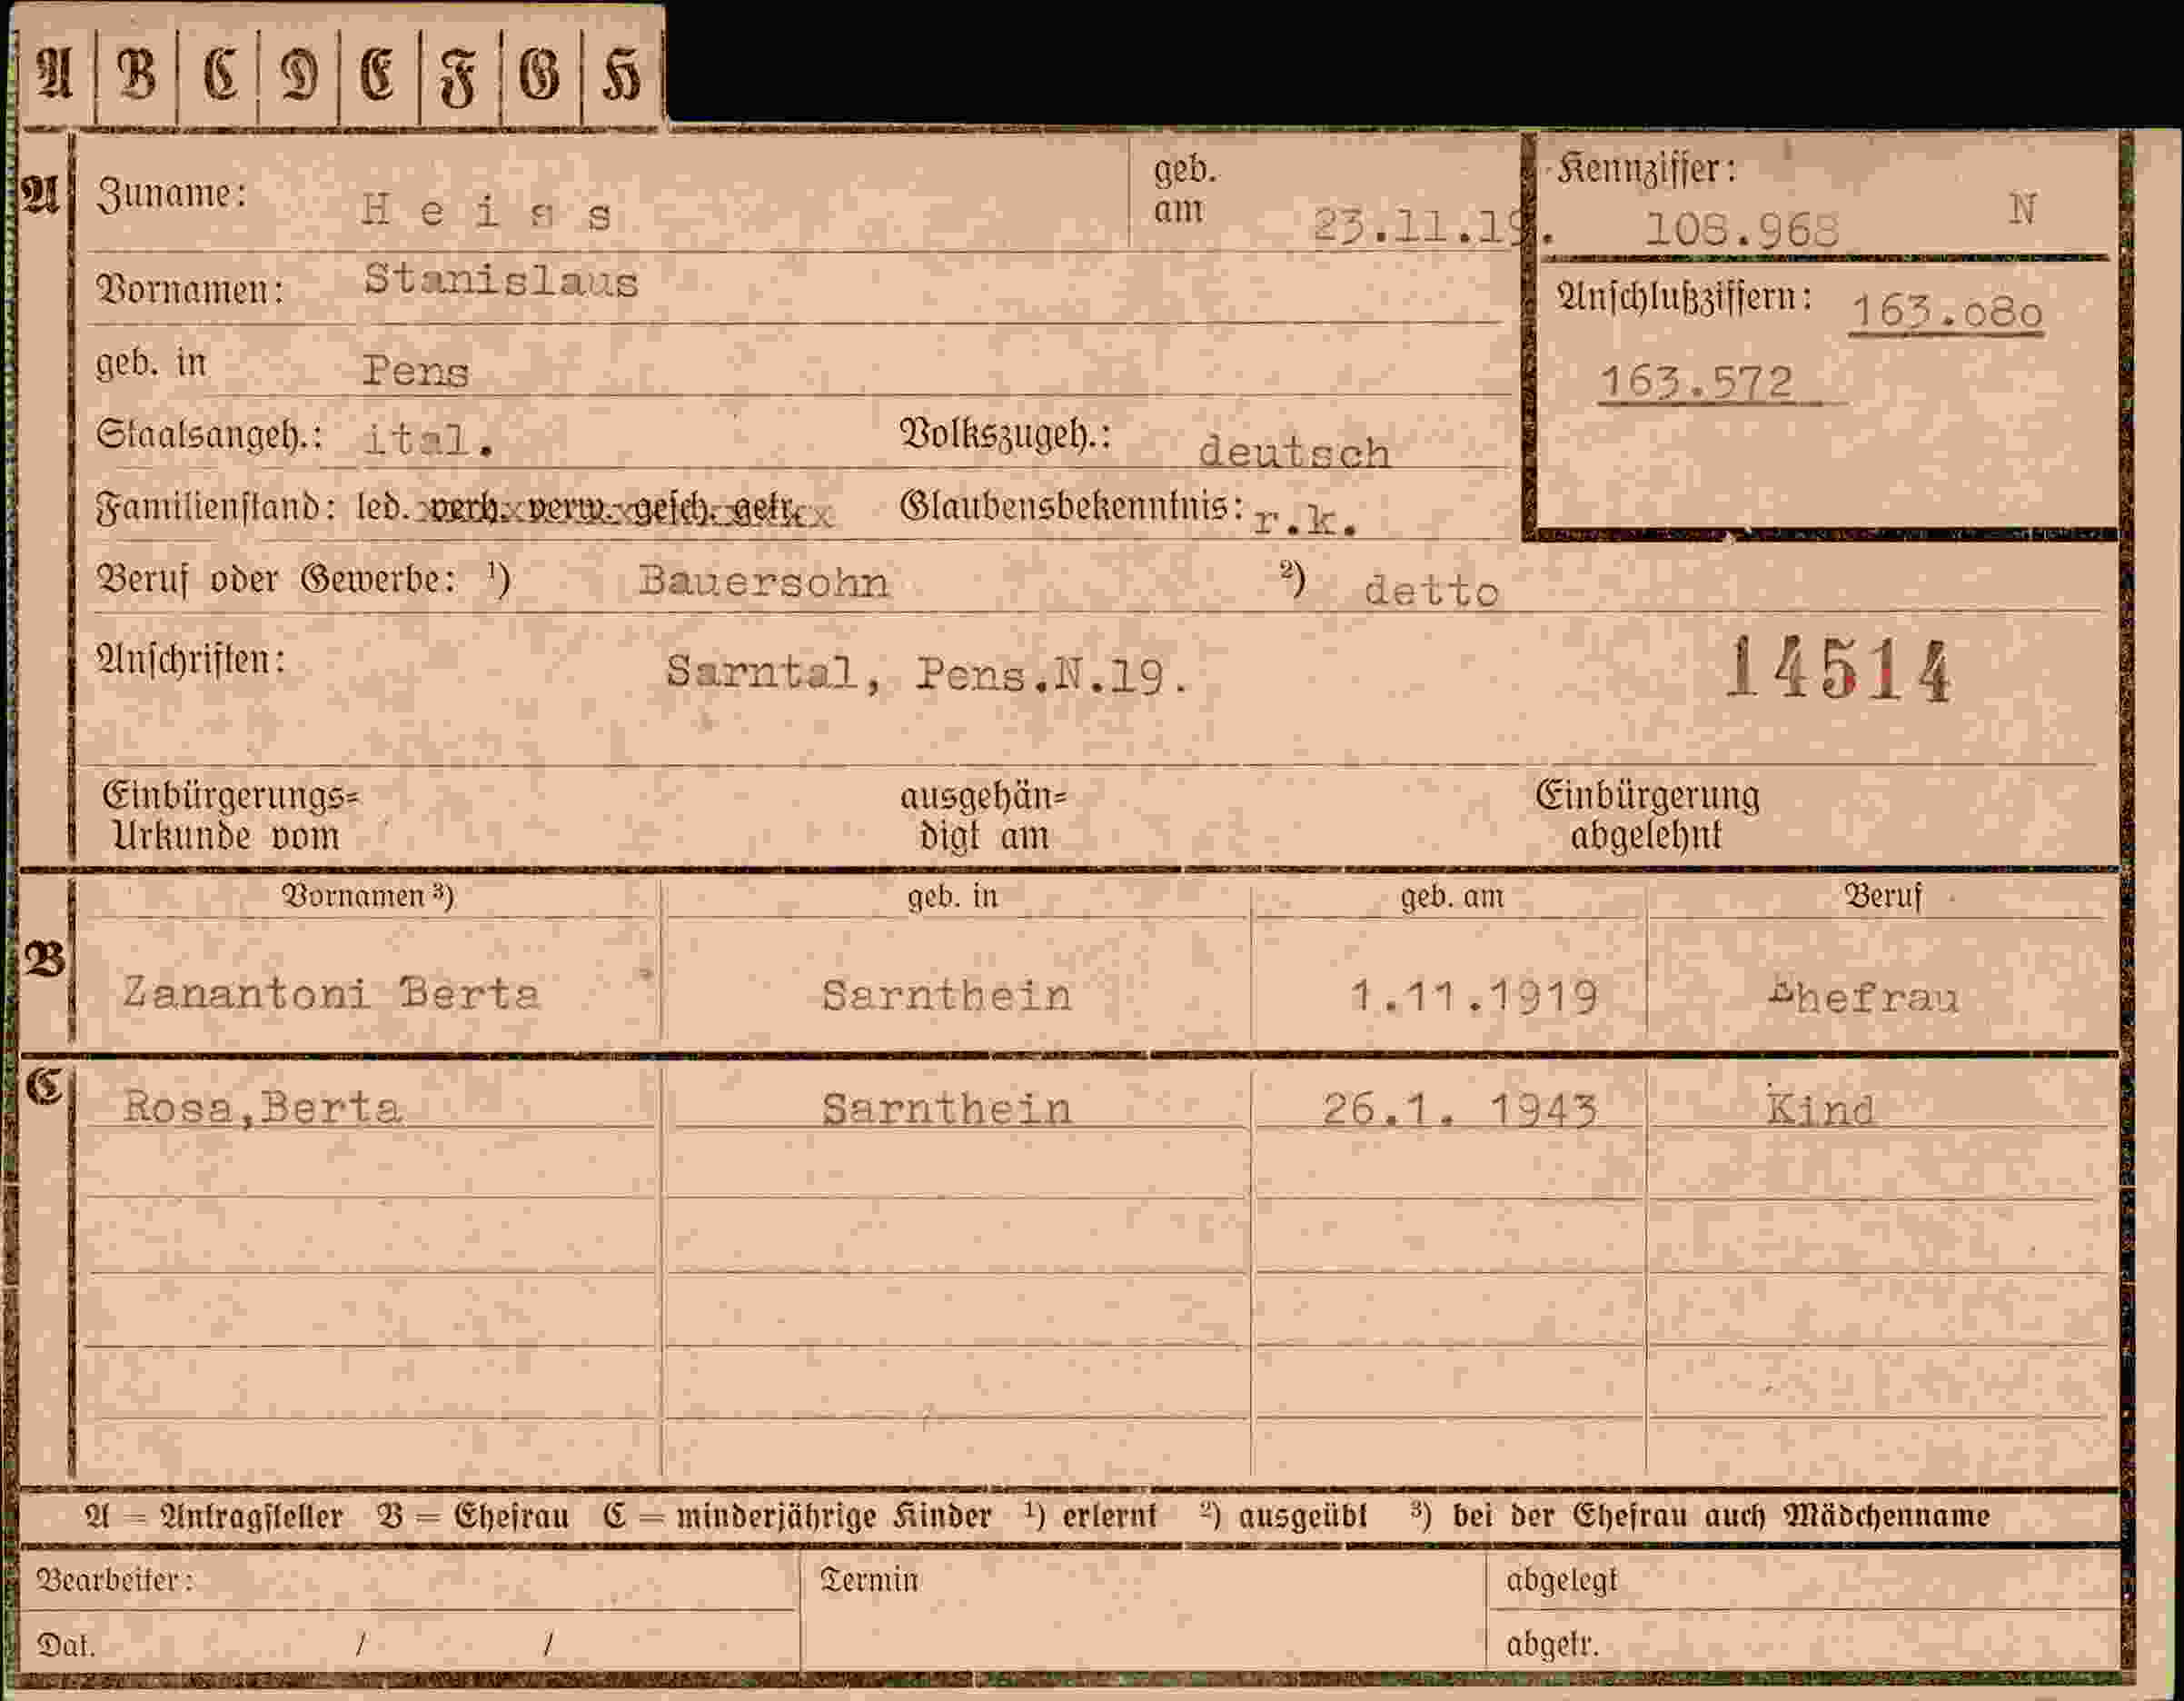 A B C D E F G H
A Zuname: Heiss geb. am 23.11.19. Kennziffer: 108.968 N
Vornamen: Stanislaus Anschlußziffern: 163.080
geb. in Pens 163.572
Staatsangeh.: ital. Volkszugeh.: deutsch
Familienstand: led. verh. verw. gesch. getr. Glaubensbekenntnis: r.k.
Beruf oder Gewerbe: ¹) Bauersohn ²) detto
Anschriften: Sarntal, Pens.N.19. 14514
Einbürgerungs= ausgehän= Einbürgerung
Urkunde vom digt am abgelehnt
Vornamen ³) geb. in geb. am Beruf
B Zanantoni Berta Sarnthein 1.11.1919 Ehefrau
C Rosa,Berta Sarnthein 26.1. 1943 Kind
A = Antragsteller B = Ehefrau C = minderjährige Kinder ¹) erlernt ²) ausgeübt ³) bei der Ehefrau auch Mädchenname
Bearbeiter: Termin abgelegt
Dat. / / abgetr.